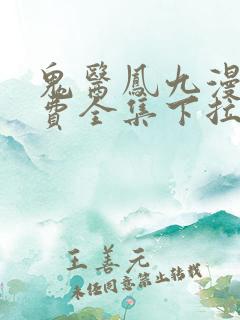 鬼醫鳳九漫
費全集下拉
王善元
未经同意禁止转载